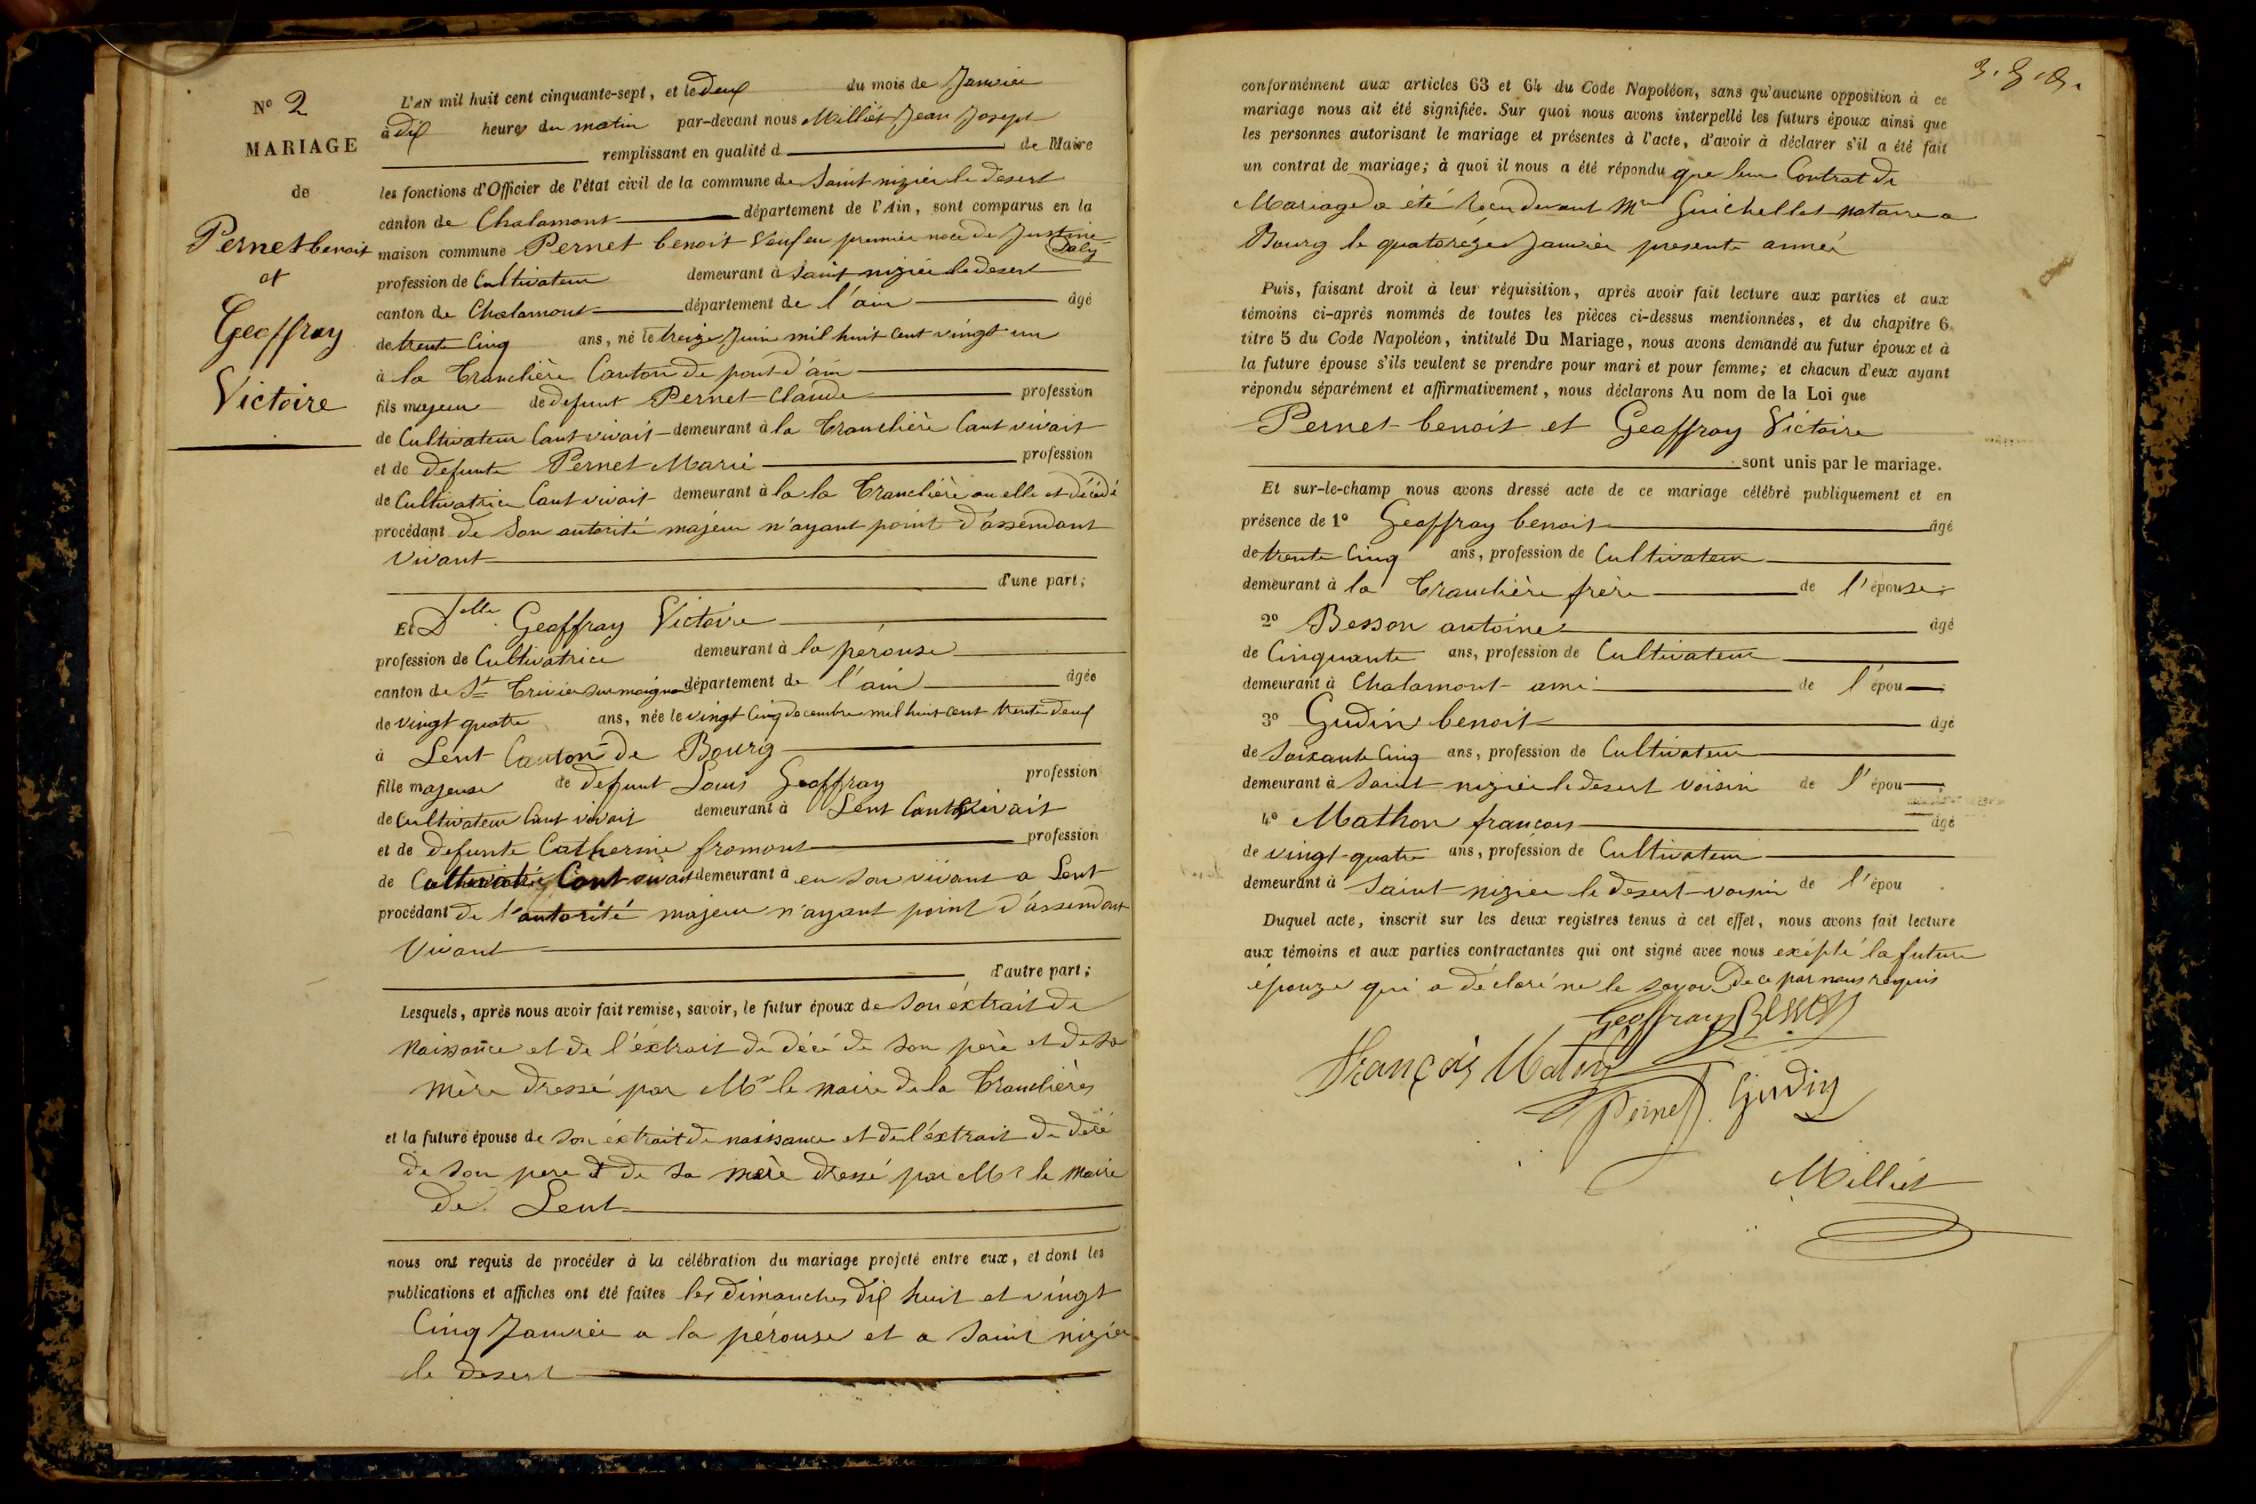 N° 2
MARIAGE
de
Pernet benoit
et
Geoffray
Victoire
L'AN mil huit cent cinquante-sept, et le deux du mois de Janvier
à dix heures du matin par-devant nous Milliet Jean Joseph
remplissant en qualité d de Maire
les fonctions d'Officier de l'état civil de la commune de Saint nizier le desert
canton de Chalamont département de l'Ain, sont comparus en la
maison commune Pernet benoit Veuf en premier noce de Justine
Daly
profession de Cultivateur demeurant à saint nizier le desert
canton de Chalamont département de l'ain âgé
de trente Cinq ans, né le treize Juin mil huit cent vingt un
à la Tranclière Canton de pont d'ain
fils majeur de defunt Pernet Claude profession
de Cultivateur Cant vivait demeurant à la Tranclière Cant vivait
et de defunte Pernet Marie profession
de Cultivatrice Cant vivait demeurant à la la Tranclière ou elle et décédé
procédant de son autorité majeur n'ayant point d'assendant
vivant
d'une part;
Et Delle Geoffray Victoire
profession de Cultivatrice demeurant à la pérouse
canton de St Trivier sur moignans département de l'ain âgée
de vingt quatre ans, née le vingt Cinq decembre mil huit cent trente deux
à Lent Canton de Bourg
fille majeure de defunt Louis Geoffray profession
de Cultivateur Cant vivait demeurant à Lent Cant vivait
et de defunte Catherine fromont profession
de Cultivatrice Cant vivait demeurant à en son vivant a Lent
procédant de l'autorité majeur n'ayant point d'assendant
vivant
d'autre part;
Lesquels, après nous avoir fait remise, savoir, le futur époux de son éxtrait de
naissance et de l'éxtrait de décé de son père et de sa
mère dressé par Mr le maire de la Tranclières
et la future épouse de son éxtrait de naissance et de l'éxtrait de décé
de son pere et de sa mère dressé par Mr le maire
de Lent
nous ont requis de procéder à la célébration du mariage projeté entre eux, et dont les
publications et affiches ont été faites les dimanches dix huit et vingt
Cinq Janvier a la pérouse et a saint nizier
le desert
conformément aux articles 63 et 64 du Code Napoléon, sans qu'aucune opposition à ce
mariage nous ait été signifiée. Sur quoi nous avons interpellé les futurs époux ainsi que
les personnes autorisant le mariage et présentes à l'acte, d'avoir à déclarer s'il a été fait
un contrat de mariage; à quoi il nous a été répondu que leur Contrat de
Mariage a été recu devant Mre Guichellet notaire a
Bourg le quatorze Janvier presente année
Puis, faisant droit à leur réquisition, après avoir fait lecture aux parties et aux
témoins ci-après nommés de toutes les pièces ci-dessus mentionnées, et du chapitre 6,
titre 5 du Code Napoléon, intitulé Du Mariage, nous avons demandé au futur époux et à
la future épouse s'ils veulent se prendre pour mari et pour femme; et chacun d'eux ayant
répondu séparément et affirmativement, nous déclarons Au nom de la Loi que
Pernet benoit et Geoffray Victoire
sont unis par le mariage.
Et sur-le-champ nous avons dressé acte de ce mariage célébré publiquement et en
présence de 1° Geoffray benoit âgé
de trente Cinq ans, profession de Cultivateur
demeurant à la Tranclière frère de l'épouse;
2° Besson antoine âgé
de Cinquante ans, profession de Cultivateur
demeurant à Chalamont ami de l'épou;
3° Gudin benoit âgé
de soixante Cinq ans, profession de Cultivateur
demeurant à saint nizier le desert voisin de l'épou;
4° Mathon francois âgé
de vingt quatre ans, profession de Cultivateur
demeurant à saint nizier le desert voisin de l'épou
Duquel acte, inscrit sur les deux registres tenus à cet effet, nous avons fait lecture
aux témoins et aux parties contractantes qui ont signé avec nous exépté la future
épouze qui a déclaré ne le savoir de ce par nous requis
Geoffray Besson
François Maton
Pernet Gudin
Milliet